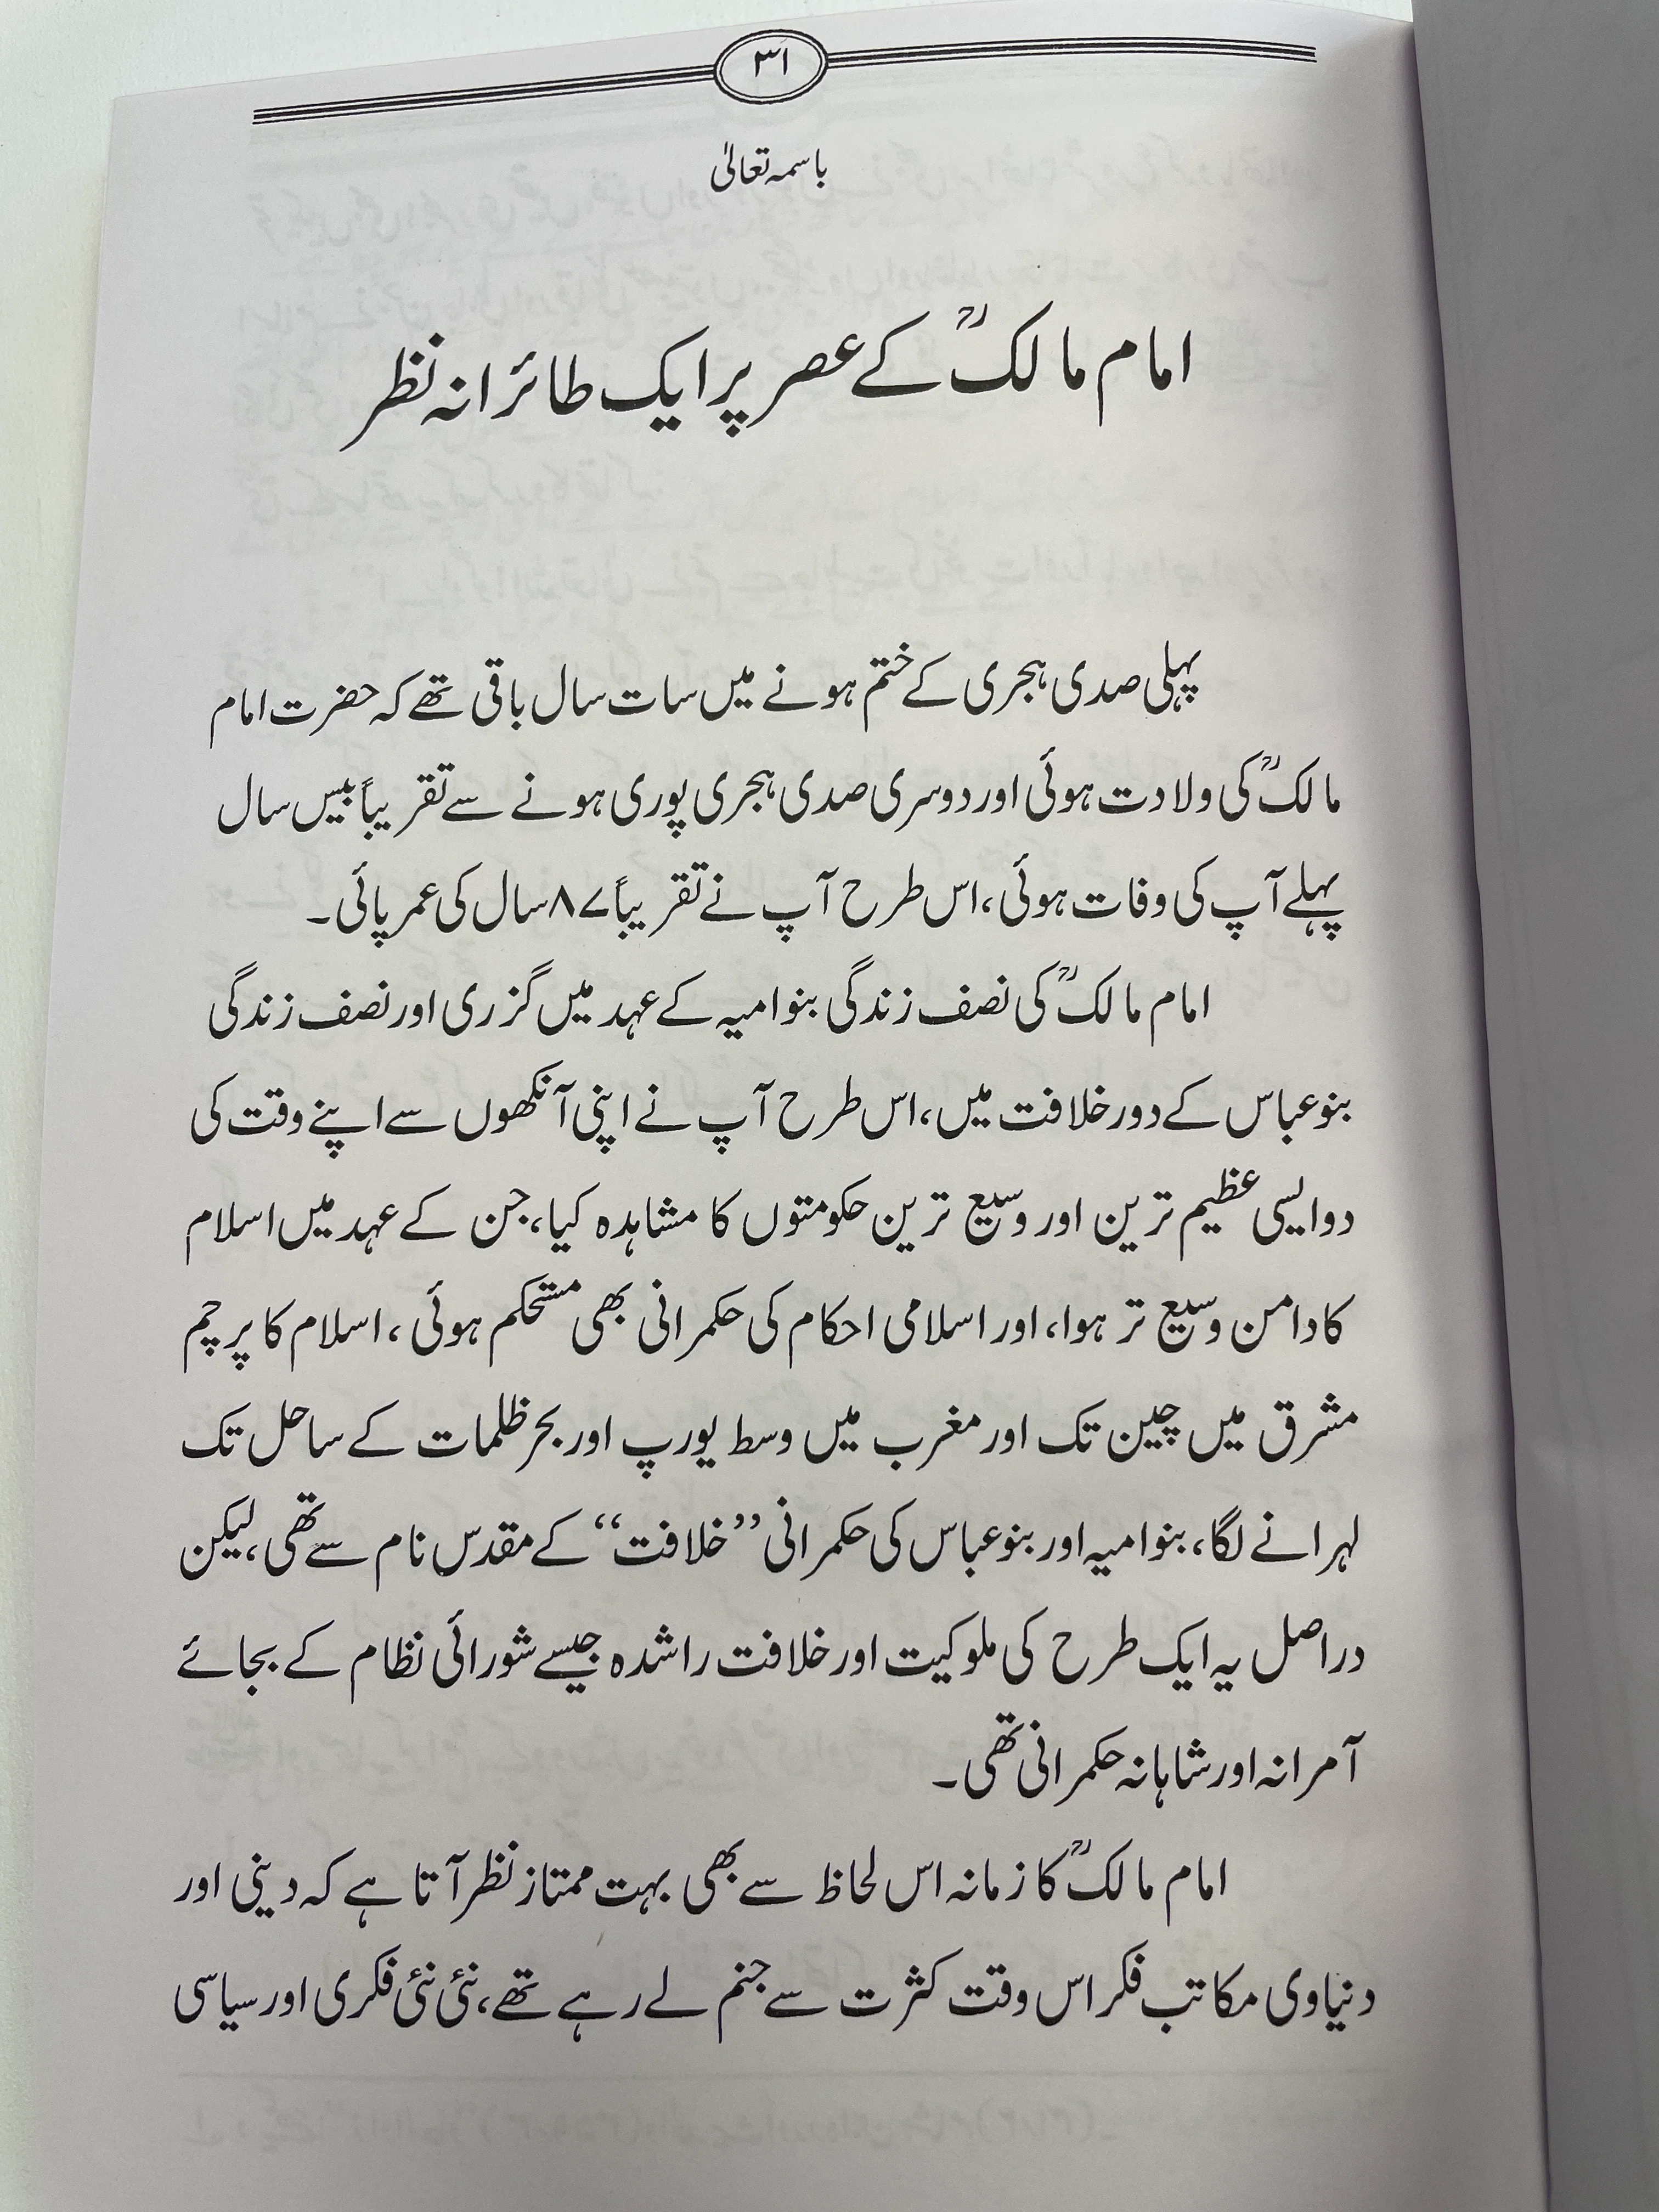 ۳۱
باسمہ تعالیٰ
امام مالکؒ کے عصر پر ایک طائرانہ نظر
پہلی صدی ہجری کے ختم ہونے میں سات سال باقی تھے کہ حضرت امام
مالکؒ کی ولادت ہوئی اور دوسری صدی ہجری پوری ہونے سے تقریباً بیس سال
پہلے آپ کی وفات ہوئی، اس طرح آپ نے تقریباً ۸۷ سال کی عمر پائی۔
امام مالکؒ کی نصف زندگی بنو امیہ کے عہد میں گزری اور نصف زندگی
بنو عباس کے دور خلافت میں، اس طرح آپ نے اپنی آنکھوں سے اپنے وقت کی
دو ایسی عظیم ترین اور وسیع ترین حکومتوں کا مشاہدہ کیا، جن کے عہد میں اسلام
کا دامن وسیع تر ہوا، اور اسلامی احکام کی حکمرانی بھی مستحکم ہوئی، اسلام کا پرچم
مشرق میں چین تک اور مغرب میں وسط یورپ اور بحر ظلمات کے ساحل تک
لہرانے لگا، بنو امیہ اور بنو عباس کی حکمرانی ’’خلافت‘‘ کے مقدس نام سے تھی، لیکن
دراصل یہ ایک طرح کی ملوکیت اور خلافت راشدہ جیسے شورائی نظام کے بجائے
آمرانہ اور شاہانہ حکمرانی تھی۔
امام مالکؒ کا زمانہ اس لحاظ سے بھی بہت ممتاز نظر آتا ہے کہ دینی اور
دنیاوی مکاتب فکر اس وقت کثرت سے جنم لے رہے تھے، نئی نئی فکری اور سیاسی